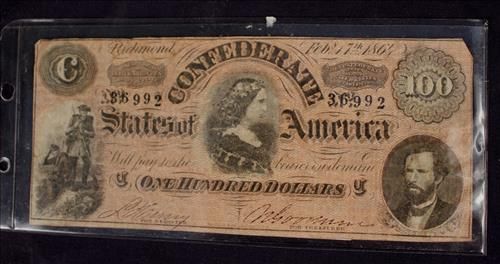 Richmond Feb. 17th 1864
CONFEDERATE
C 100
36992 36992
States of America
Will pay to the bearer on demand
C ONE HUNDRED DOLLARS C
FOR TREASURER